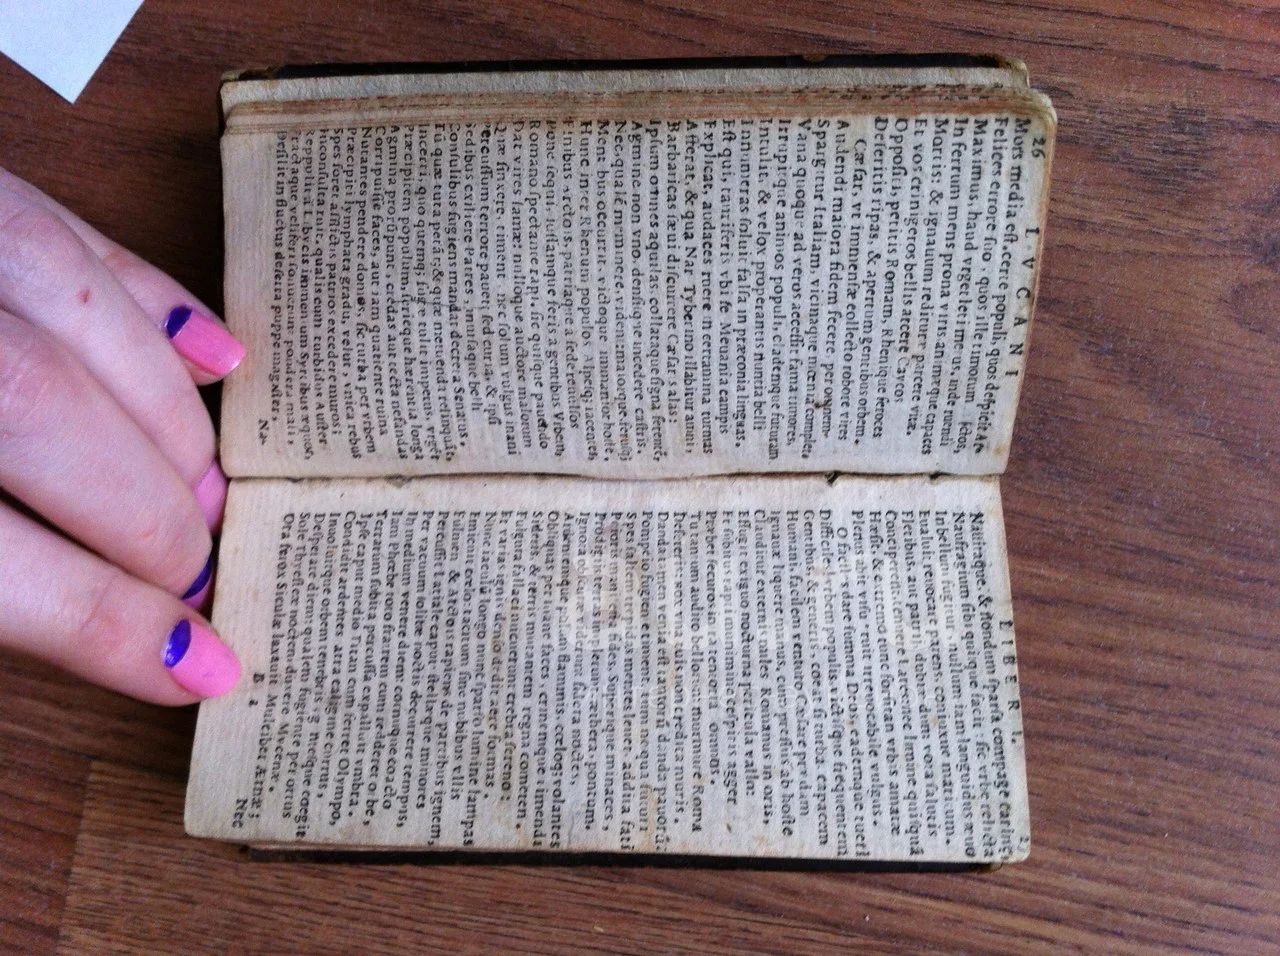 26 L V C A N I
Mors media est. certe populi, quos despicit Arc.
Felices errore suo, quos ille timorum
Maximus, haud vrget leti metus. inde ruendi
In ferrum mens prona viris, animæque capaces
Mortis: & ignauum redituræ parcere vitæ.
Et vos crinigeros bellis arcere Caycos
Oppositi, petitis Romam, Rhenique feroces
Deseritis ripas, & apertum gentibus orbem.
Cæsar, vt immensæ collecto robore vires
Audendi maiora fidem fecere per omnem
Spargitur Italiam, vicinaque mœnia complet.
Vana quoque ad veros accessit fama timores,
Irrupitque animos populi, clademque futuram
Intulit, & velox properantis nuntia belli
Innumeras soluit falsa in præconia linguas.
Est qui, tauriferis vbi se Meuania campis
Explicat, audaces ruere in certamina turmas
Afferat, & qua Nar Tyberino illabitur amni,
Barbaricas sæui discurrere Cæsaris alas:
Ipsum omnes aquilas, collataque signa ferentē
Agmine non vno, densisque incedere castris.
Nec qualē meminere, vident: maiorque ferusq;
Ment bus occurrit, victoque immanior hoste.
Hunc inter Rhenum populos Alpesq; iacentes,
Finibus Arctois, patriaque à sede reuulsos
Pone sequi, iussamque feris à gentibus Vrbem,
Romano spectante rapi. sic quisque pauendo
Dat vires famæ: nulloque auctore malorum
Quæ finxere, timent. nec solum vulgus inani
Percussum terrore pauet: sed curia, & ipsi
Sedibus exiliere Patres, inuisaque belli
Consulibus fugiens mandat decreta Senatus.
Tū quæ tuta petāt, & quæ metuenda relinquāt,
Incerti, quo quemq; fugæ tulit impetus, vrgēt
Præcipitem populum, serieque hærentia longa
Agmina prorūpunt. credas aut tecta nefandas
Corripuisse faces, aut iam quatiente ruina
Nutantes pendere domos, sic turba per vrbem
Præcipiti lymphata gradu, velut vnica rebus
Spes foret afflictis patrios excedere muros:
Inconsulta ruit. qualis cum turbidus Auster
Reppulit à Libycis immensum Syrtibus æquor,
Fractaque veliferi sonuerunt pondera mali,
Desilit in fluctus deserta puppe magister,
Na-
LIBER I. 27
Nauitaque, & nondum sparsa compage carinæ
Naufragium sibi quisque facit: sic vrbe relicta
In bellum fugitur. nullum iam languidus æuo
Eualuit reuocare parens, coniuxue maritum,
Fletibus: aut patrii, dubiæ dum vota salutis
Conciperent, tenuere Lares: nec limine quisquā
Hæsit, & extremo tunc forsitan vrbis amatæ
Plenus abit visu: ruit irreuocabile vulgus.
O faciles dare summa Deos, eademque tueri
Difficiles! vrbem populis, victisque frequentem
Gentibus, & generis, coeat si turba, capacem
Humani, facilem venienti Cæsare prædam
Ignauæ liquere manus. cum pressus ab hoste
Clauditur externis miles Romanus in oris,
Effugit exiguo nocturna pericula vallo:
Et subitus rapti munimine cespitis agger
Præbet securos intra tentoria somnos.
Tu tantum audito bellorum murmure Roma
Desereris: nox vna tuis non credita muris.
Danda tamen venia est tantorū, danda pauorū:
Pompeio fugiente timent. tum ne qua futuri
Spes saltem trepidas mentes leuet, addita fati
Peioris manifesta fides, Superique minaces,
Prodigiis terras implerunt, æthera pontum.
Ignota obscuræ viderunt sidera noctes,
Ardentemque polum flammis, cæloque volantes
Obliquas per inane faces, crinemque timendi
Sideris, & terris mutantem regna cometen.
Fulgura fallaci micuerunt crebra sereno:
Et varias ignis denso dedit aere formas.
Nunc iaculū longo nunc sparso lumine lampas
Emicuit cælo: tacitum sine nubibus vllis
Fulmen, & Arctois rapiens de partibus ignem,
Percussit Latiale caput: stellæque minores
Per vacuum solitæ noctis decurrere tempus,
In medium venere diem: cornuque coacto
Iam Phœbe toto fratrem cum redderet orbe,
Terrarum subita percussa expalluit vmbra.
Ipse caput medio Titan cum ferret Olympo,
Condidit ardentes atra caligine currus,
Inuoluitque orbem tenebris, gentesque coegit
Desperare diem: qualem fugiente per ortus
Sole Thyesteæ noctem duxere Mycenæ.
Ora ferox Siculæ laxauit Mulciber Ætnæ;
B 2 Nec